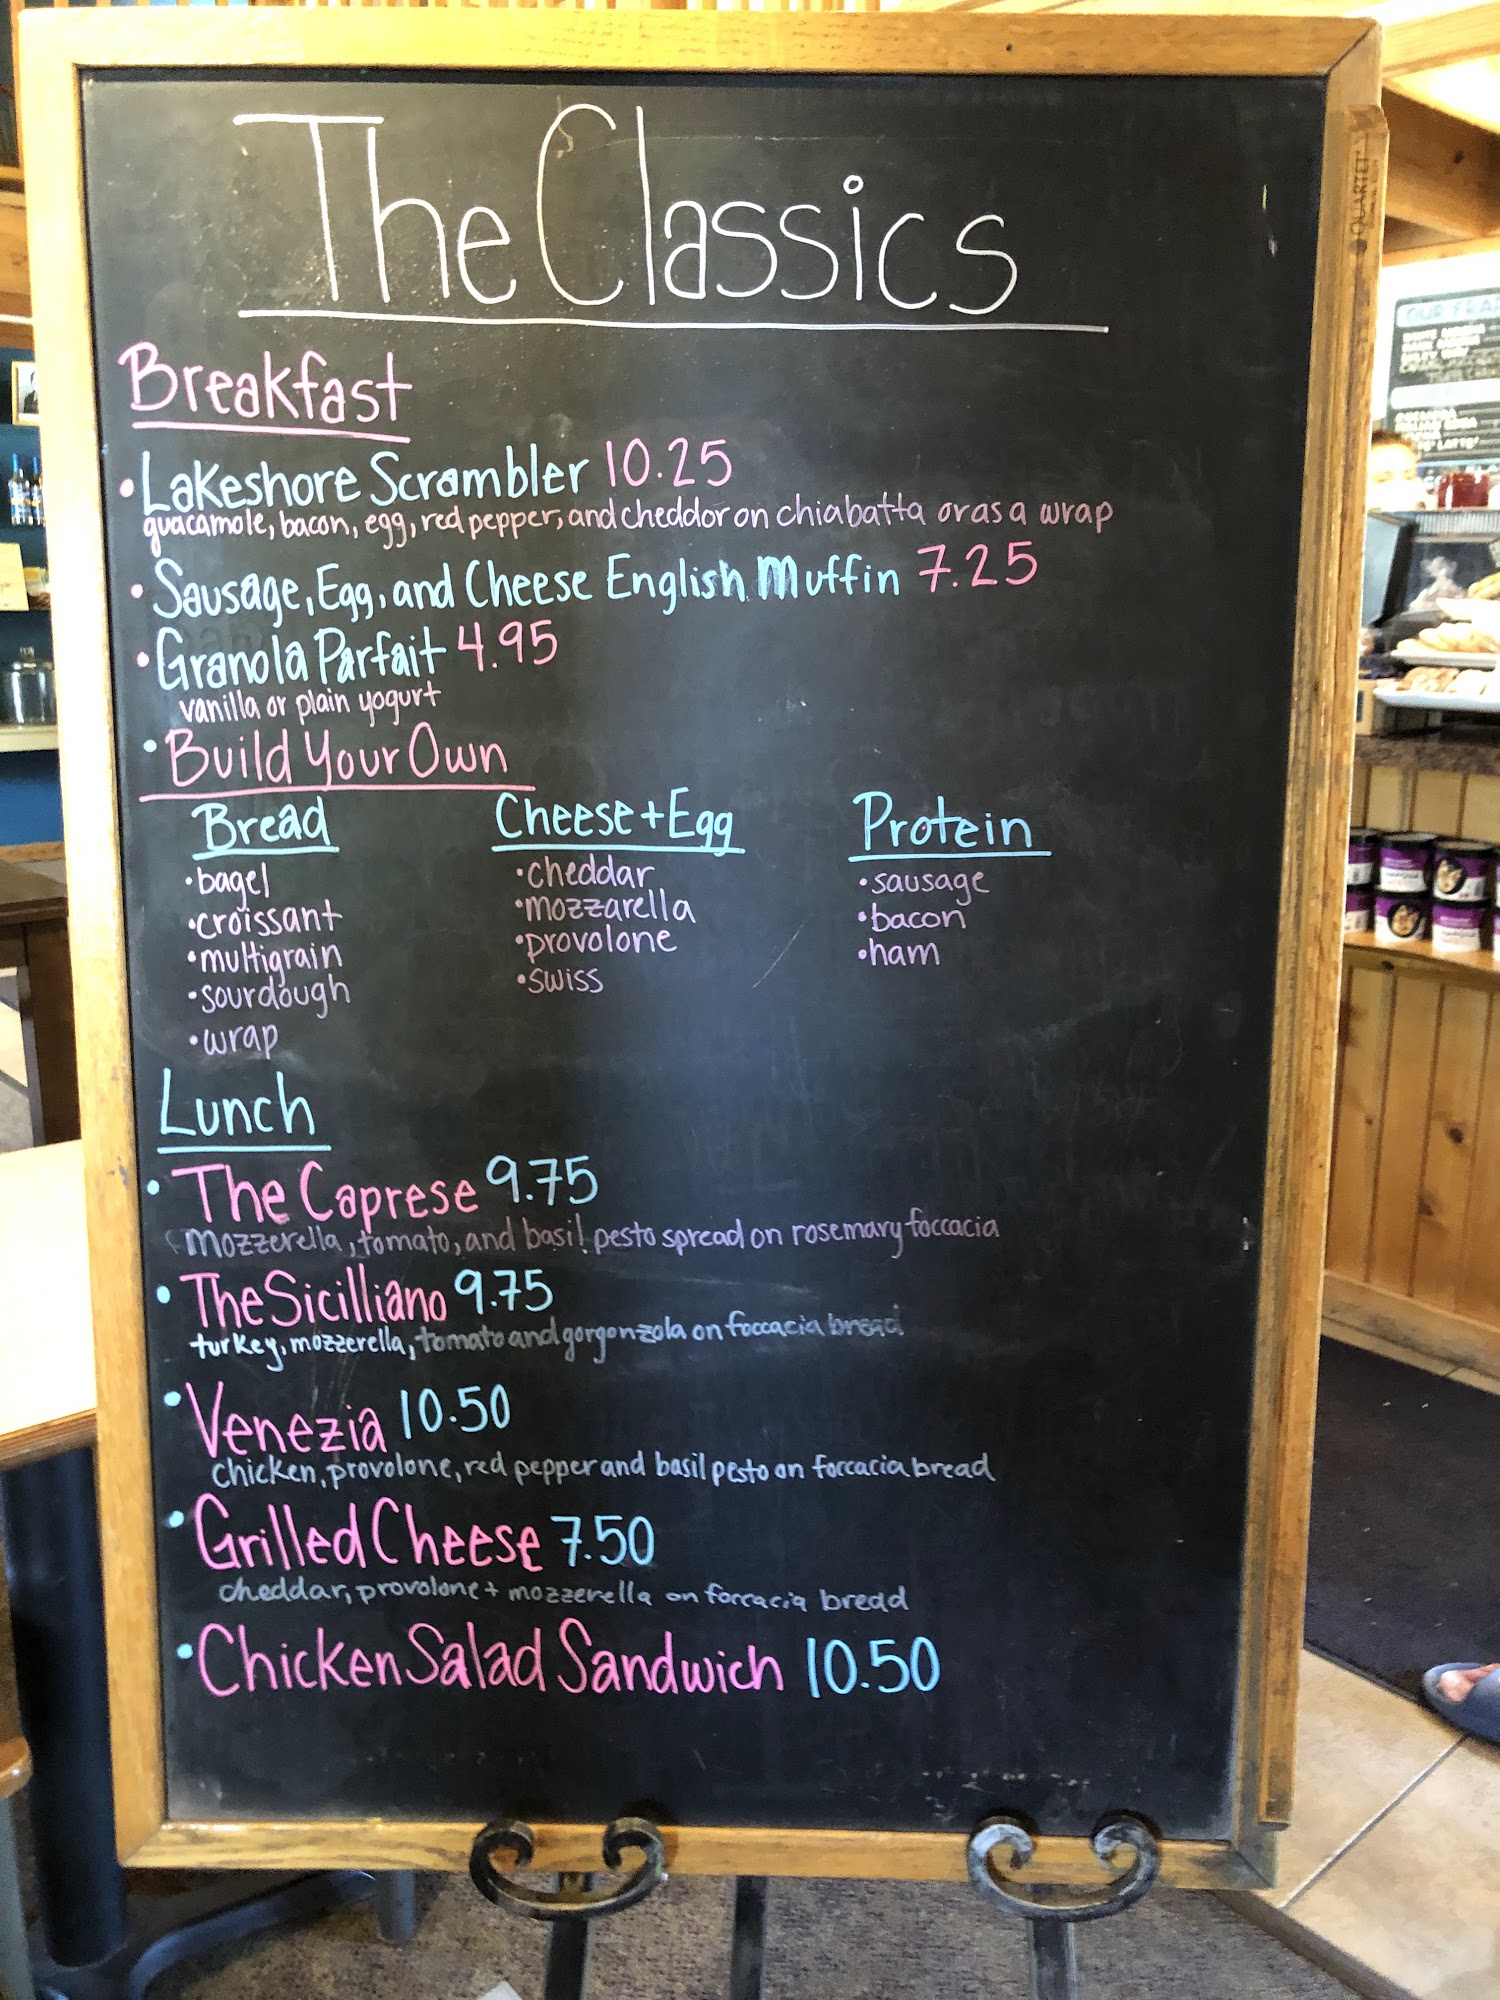 The Classics
Breakfast
•Lakeshore Scrambler 10.25
guacamole, bacon, egg, red pepper, and cheddor on chiabatta or as a wrap
•Sausage, Egg, and Cheese English Muffin 7.25
•Granola Parfait 4.95
vanilla or plain yogurt
•Build Your Own
Bread
•bagel
•croissant
•multigrain
•sourdough
•wrap
Cheese+Egg
•cheddar
•mozzarella
•provolone
•swiss
Protein
•sausage
•bacon
•ham
Lunch
•The Caprese 9.75
mozzerella, tomato, and basil pesto spread on rosemary foccacia
•The Sicilliano 9.75
turkey, mozzerella, tomato and gorgonzola on foccacia bread
•Venezia 10.50
chicken, provolone, red pepper and basil pesto on foccacia bread
•Grilled Cheese 7.50
cheddar, provolone + mozzerella on foccacia bread
•Chicken Salad Sandwich 10.50
QUARTET
OUR FRAP
LATTE